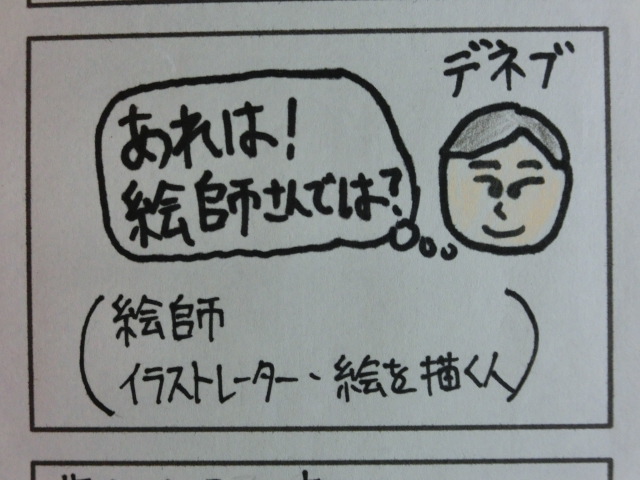 デネブ
あれは!
絵師さんでは?
(絵師
イラストレーター・絵を描く人)